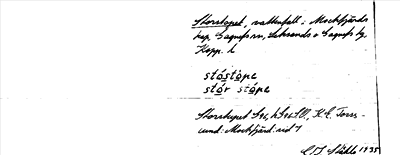 Storstupet, vattenfall i Mockfjärds
kap. Gagnefs sn, Leksands o Gagnefs tg
Kopp. l.
stóstópe
stór stópe
Storstupet S96, h S96 SO, K.E. Forss-
lund: Mockfjärd: sid 7
1935